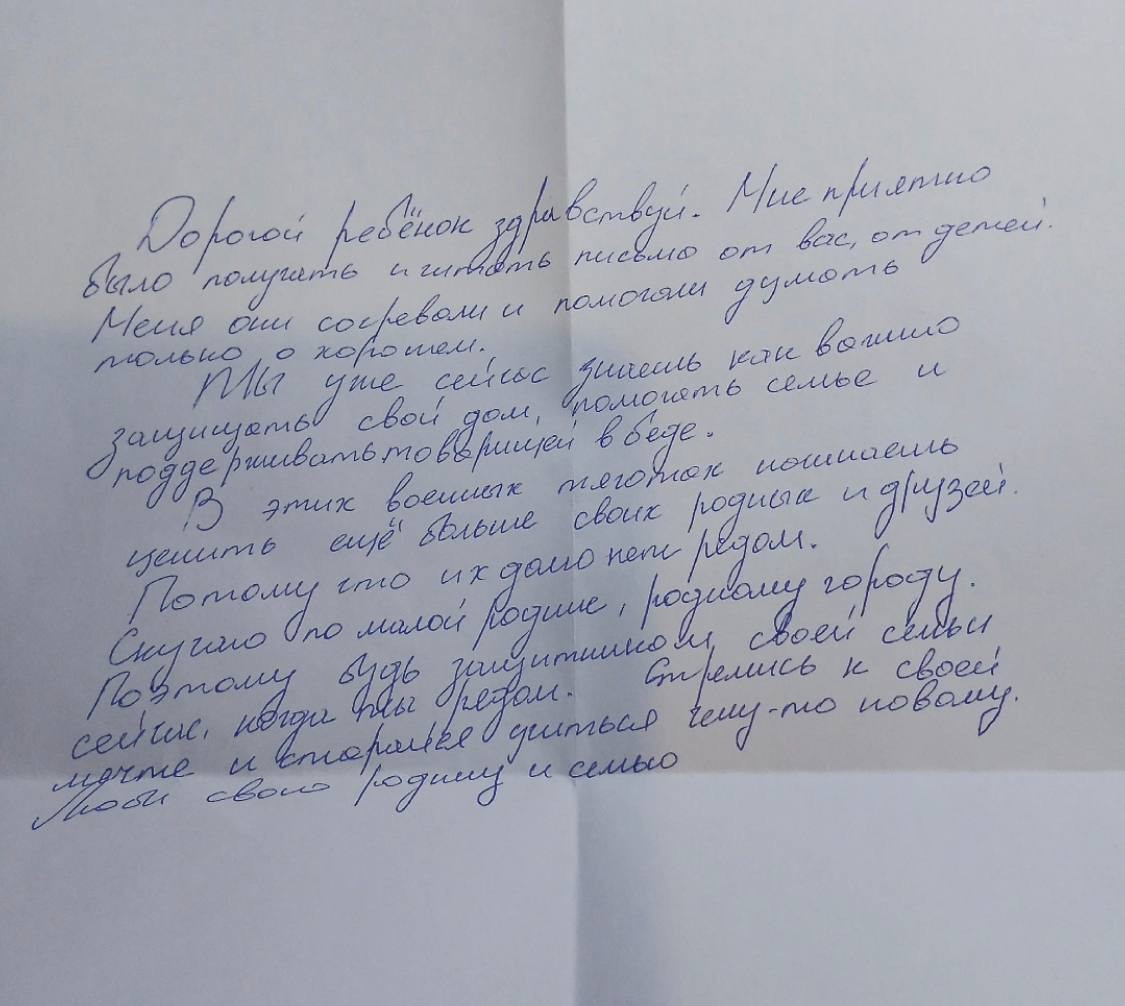 Дорогой ребёнок здравствуй. Мне приятно
было получать и читать письмо от вас, от детей.
Меня они согревали и помогали думать
только о хорошем.
Ты уже сейчас знаешь как важно
защищать свой дом, помогать семье и
поддерживать товарищей в беде.
В этих военных тяготах начинаешь
ценить ещё больше своих родных и друзей.
Потому что их долго нет рядом.
Скучаю по малой родине, родному городу.
Поэтому будь защитником своей семьи
сейчас, когда ты редом. Стремись к своей
мечте и старайся учиться чему-то новому.
Люби свою родину и семью